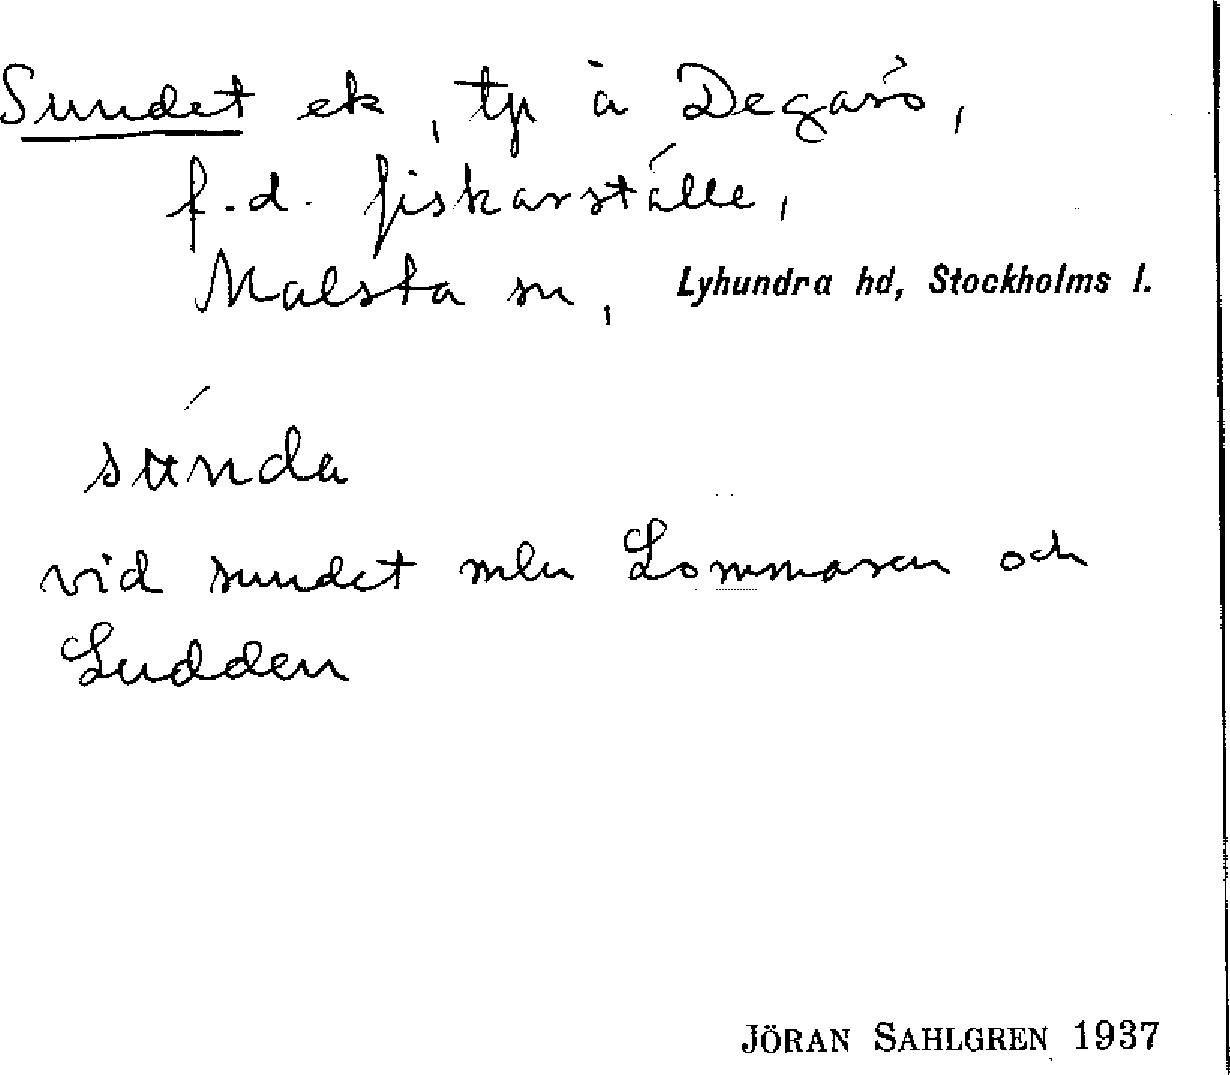 Sundet ek, tp å Degarö,
f.d. fiskarställe,
Malsta sn, Lyhundra hd, Stockholms l.
súnda
vid sundet mln Lommaren och
Ludden
JÖRAN SAHLGREN 1937